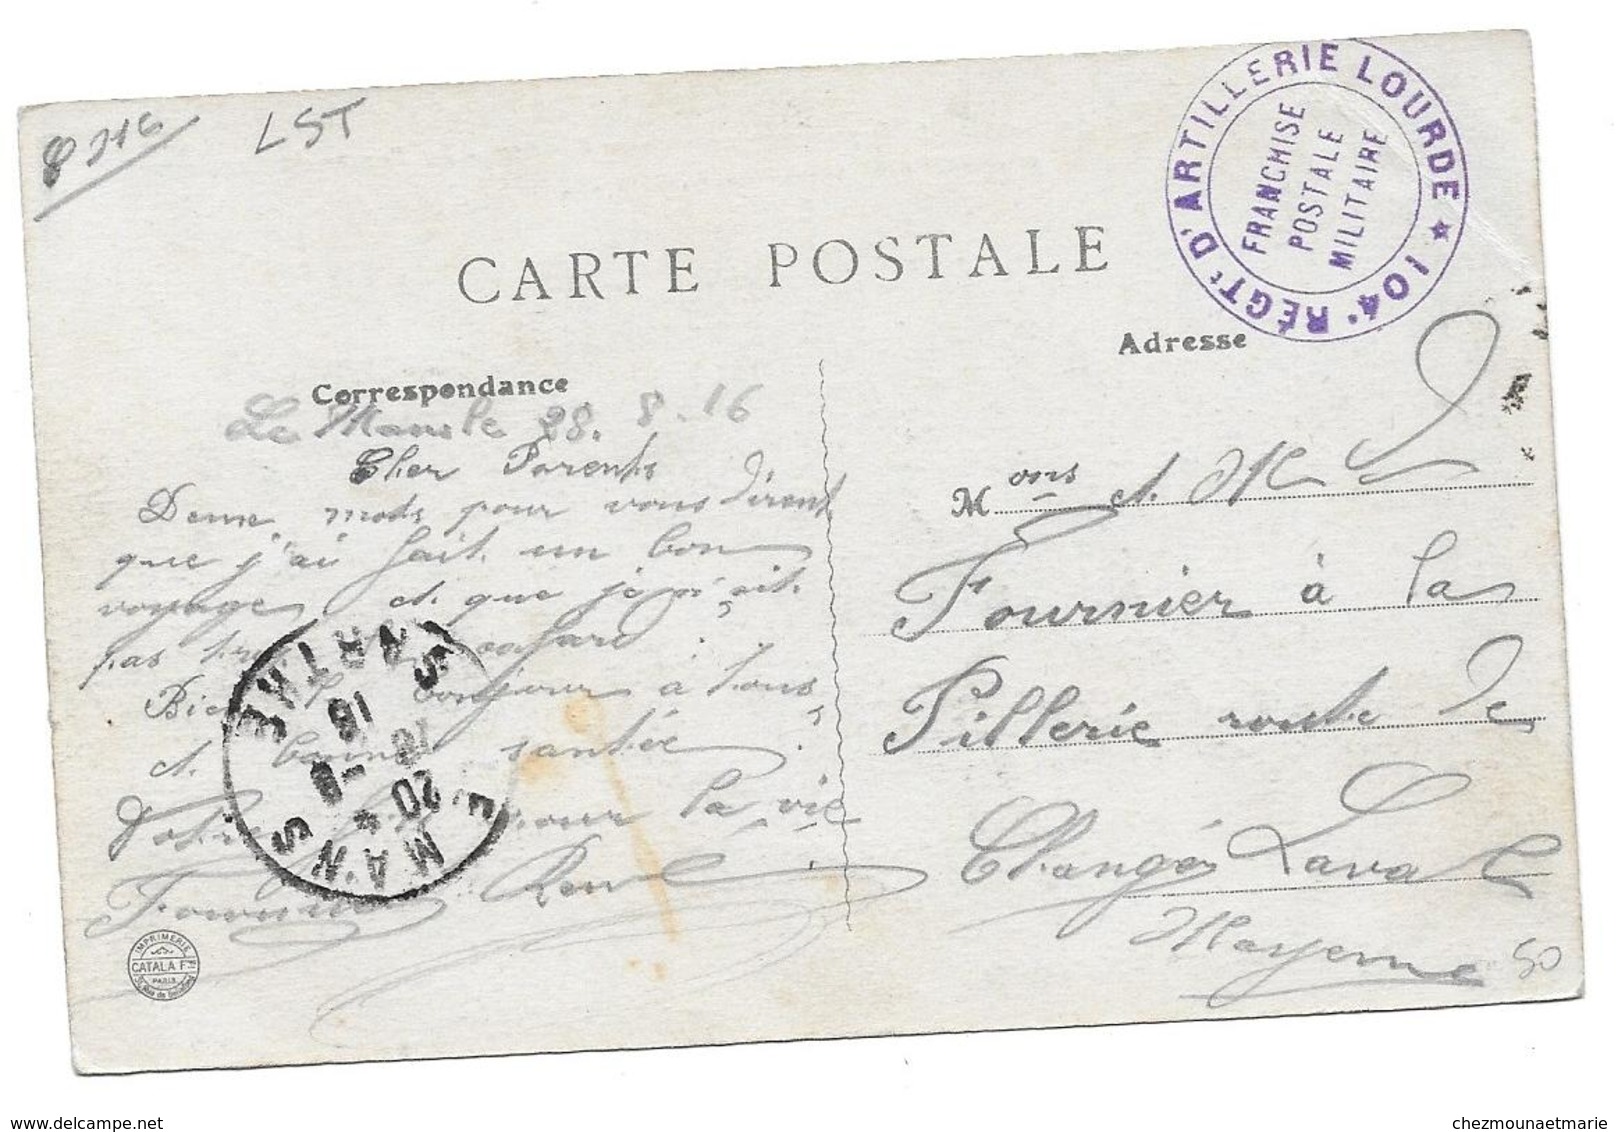 8 216
LST
104e RÉGt D'ARTILLERIE LOURDE ★
FRANCHISE
POSTALE
MILITAIRE
CARTE POSTALE
Adresse
Correspondance
Le Mans le 28. 8. 16
Cher Parents
Deux mots pour vous dirent
que j'ai fait un bon
voyage et que je n'ait
pas cafard
Bien bonjour à tous
et bonne santée
Votre fils pour la vie
Fournier René
Mons et Me
Fournier à la
Pillerie route de
Changé Laval
Mayenne
50
LE MANS
SARTHE
20
18
IMPRIMERIE
CATALA Fres
PARIS
chezmounaetmarie
delcampe.net